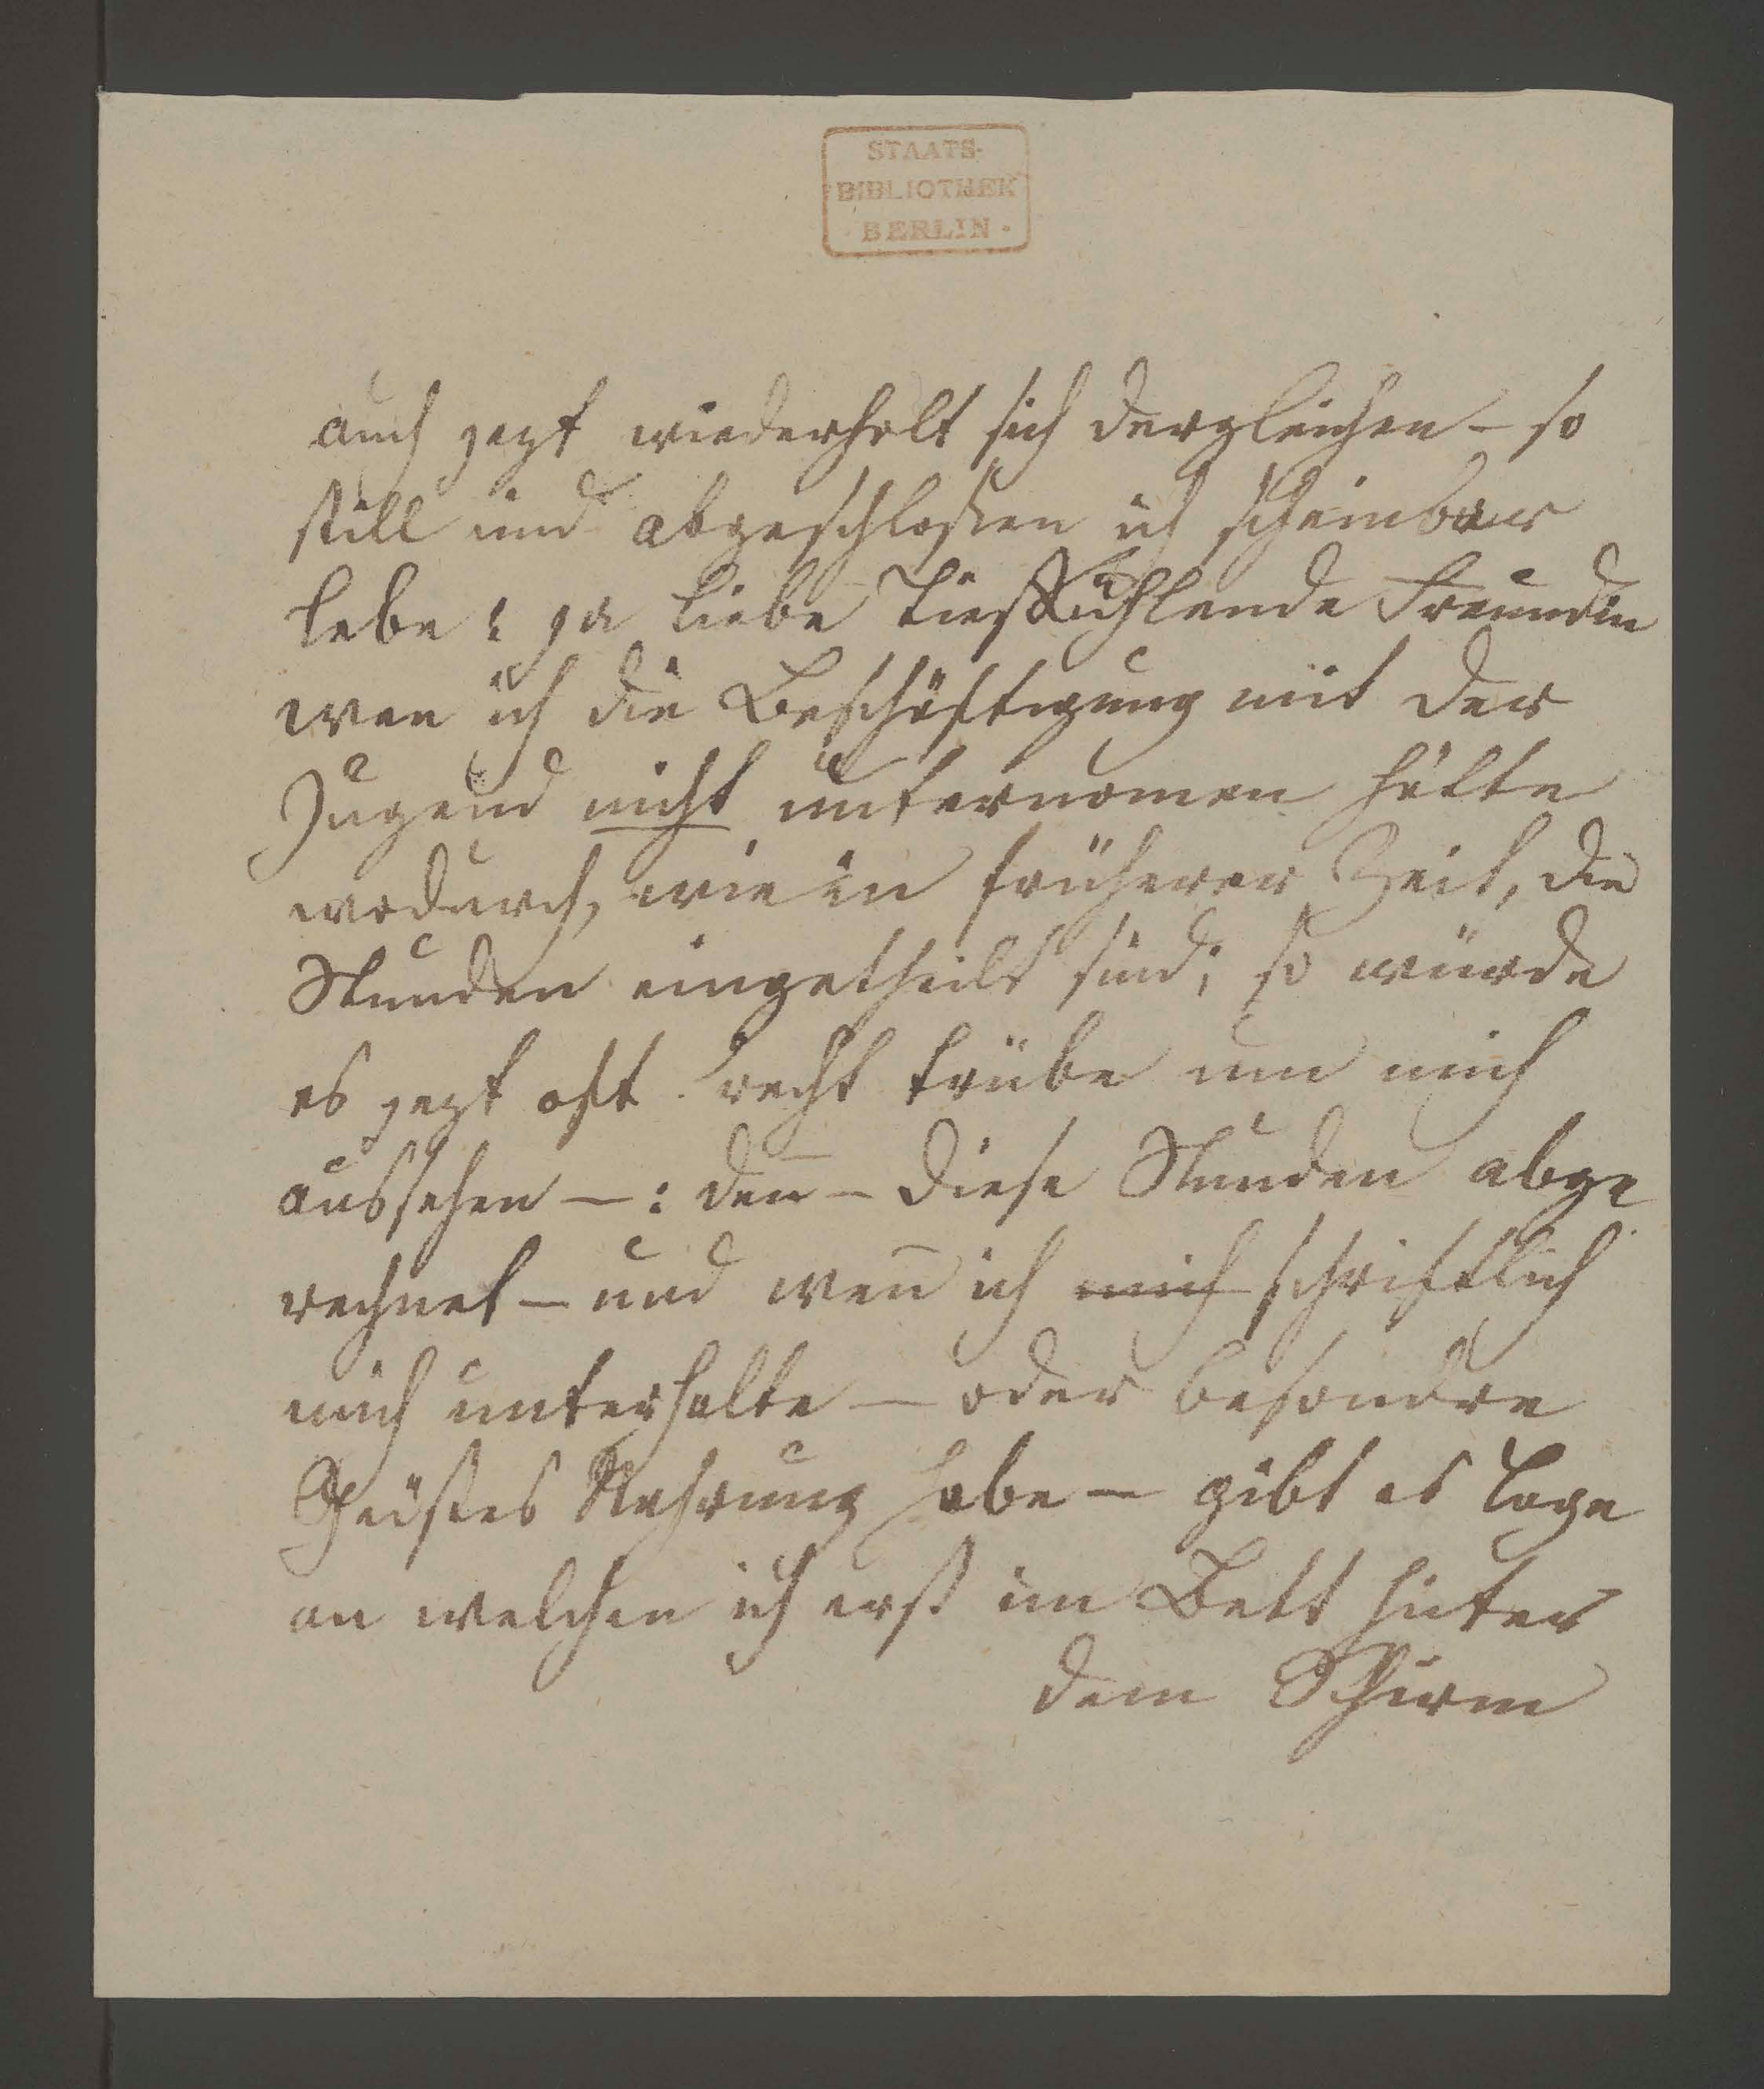 STAATS-
BIBLIOTHEK
BERLIN
auch jezt wiederholt sich dergleichen – so
still und abgeschloßen ich scheinbar
lebe : ja liebe tieffühlende Freundin
wen ich die Beschäftigung mit der
Jugend nicht unternomen hätte
wodurch, wie in früherer Zeit, die
Stunden eingetheilt sind; so würde
es jezt oft recht trübe um mich
aussehen – : den̅ – diese Stunden abge
rechnet – und wen̅ ich mich schriftlich
mich unterhalte – oder besondre
Geistes Nahrung habe – gibt es Tage
an welchen ich erst im Bett hinter
dem Schirm